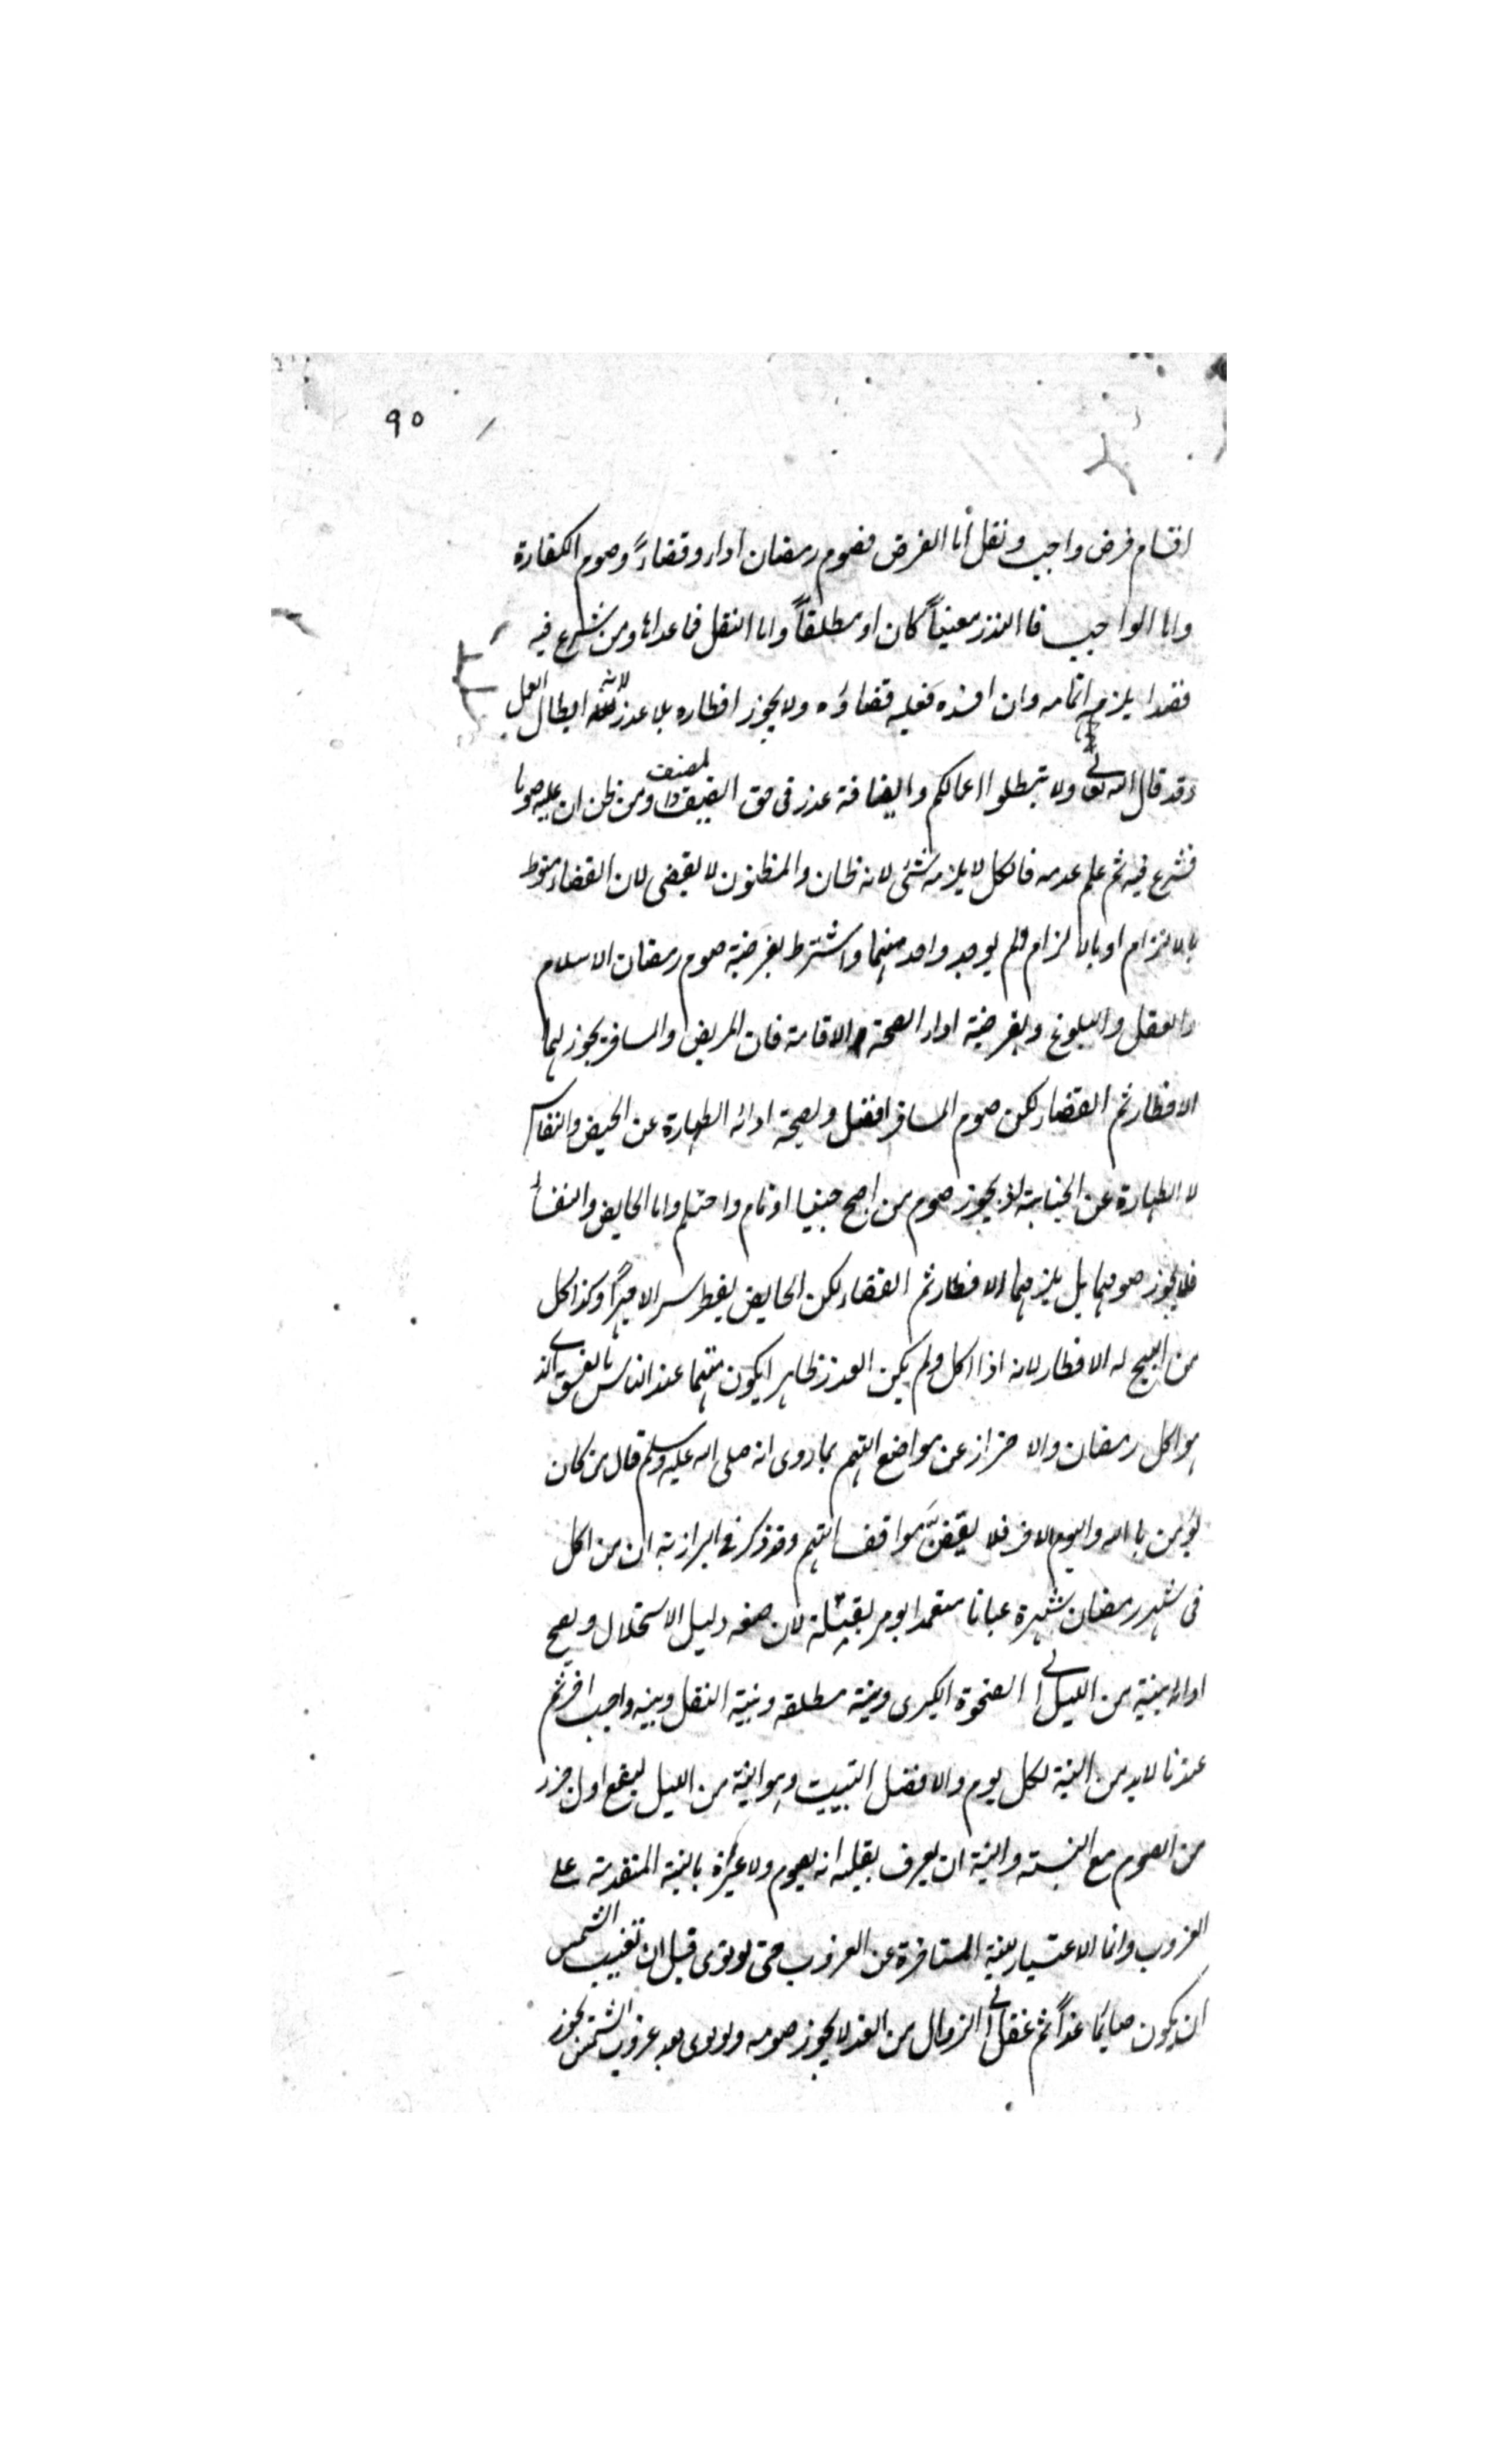 ٩٥
اقسام فرض واجب ونفل أما الفرض فصوم رمضان اداء وقضاءً وصوم الكفارة
واما الواجب فاالنذر معيناً كان او مطلقاً واما النفل فما عداها ومن شرع فيه
فقدا يلزمه اتمامه وان افسده فعليه قضاؤه ولا يجوز افطاره بلا عذر لانه ابطال العمل
وقد قال الله تعالى ولا تبطلوا اعمالكم والضيافة عذر في حق الضيف والمضيف ومن ظن ان عليه صوما
فشرع فيه ثم علم عدمه فاكل لا يلزمه شئى لانه ظان والمظنون لا يقضى لان القضاء منوط
بالالتزام او بالالزام فلم يوجد واحد منهما واشترط بفرضية صوم رمضان الاسلام
والعقل والبلوغ وبفرضية اداء الصحة والاقامة فان المريض والمسافر يجوز لهما
الافطار ثم القضاء لكن صوم المسافر افضل ولصحة ادائه الطهارة عن الحيض والنفاس
لا الطهارة عن الجنابة اذ يجوز صوم من اصبح جنبا او نام واحتلم واما الحايض والنفساء
فلا يجوز صومهما بل يلزمهما الافطار ثم القضاء لكن الحايض يفطر سرا لا جهراً وكذا كل
من ابيح له الافطار لانه اذا اكل ولم يكن العذر ظاهرا يكون متهما عند الناس بالفسق الذي
هو اكل رمضان والاحتراز عن مواضع التهم بما روى انه صلى الله عليه وسلم قال من كان
يؤمن بالله واليوم الاخر فلا يقفنّ مواقف التهم وقد ذكر فى البزازية ان من اكل
فى شهر رمضان شهرة عيانا متعمدا يومر بقتله لان صنعه دليل الاستحلال ويصح
اداؤه بنية من الليل الى الضحوة الكبرى وبنية مطلقه وبنية النفل وبنية واجب اخر ثم
عندنا لابد من النية لكل يوم والافضل التبييت وهو النية من الليل ليقع اول جزء
من الصوم مع النية والنية ان يعرف بقلبه انه يصوم ولا عبرة بالنية المتقدمة على
الغروب وانما الاعتبار بنية المتاخرة عن الغروب حتى لو نوى قبل ان تغيب الشمس
ان يكون صايما غداً ثم غفل الى الزوال من الغد لا يجوز صومه ولو نوى بعد غروب الشمس يجوز